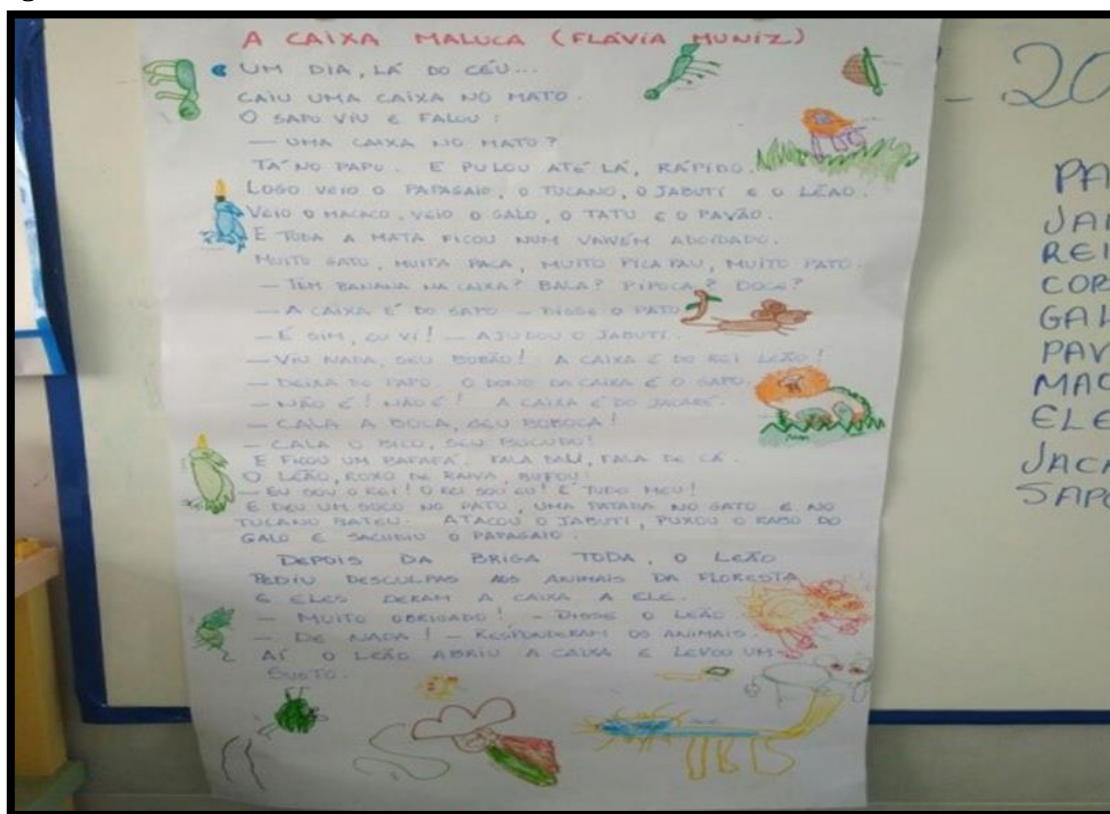 A CAIXA MALUCA (FLÁVIA MUNIZ)
UM DIA, LÁ DO CÉU...
CAIU UMA CAIXA NO MATO.
O SAPO VIU E FALOU:
— UMA CAIXA NO MATO?
TÁ NO PAPO. E PULOU ATÉ LÁ, RÁPIDO.
LOGO VEIO O PAPAGAIO, O TUCANO, O JABUTI E O LEÃO.
VEIO O MACACO, VEIO O GALO, O TATU E O PAVÃO.
E TODA A MATA FICOU NUM VAIVÉM ADOIDADO.
MUITO GATO, MUITA PACA, MUITO PICA PAU, MUITO PATO.
— TEM BANANA NA CAIXA? BALA? PIPOCA? DOCE?
— A CAIXA É DO SAPO — DISSE O PATO.
— É SIM, EU VI! — AJUDOU O JABUTI.
— VIU NADA, SEU BOBÃO! A CAIXA É DO REI LEÃO!
— DEIXA DE PAPO. O DONO DA CAIXA É O SAPO.
— NÃO É! NÃO É! A CAIXA É DO JACARÉ.
— CALA A BOCA, SEU BOBOCA!
— CALA O BICO, SEU BICUDO!
E FICOU UM BAFAFÁ. FALA DALI, FALA DE CÁ.
O LEÃO, ROXO DE RAIVA, BUFOU:
— EU SOU O REI! O REI SOU EU! É TUDO MEU!
E DEU UM SOCO NO PATO, UMA PATADA NO GATO E NO
TUCANO BATEU. ATACOU O JABUTI, PUXOU O RABO DO
GALO E SACUDIU O PAPAGAIO.
DEPOIS DA BRIGA TODA, O LEÃO
PEDIU DESCULPAS AOS ANIMAIS DA FLORESTA
E ELES DERAM A CAIXA A ELE.
— MUITO OBRIGADO! — DISSE O LEÃO
— DE NADA! — RESPONDERAM OS ANIMAIS.
AÍ O LEÃO ABRIU A CAIXA E LEVOU UM
SUSTO.
20
PA
REI
GAL
PAV
MAC
ELE
JACA
SAPO